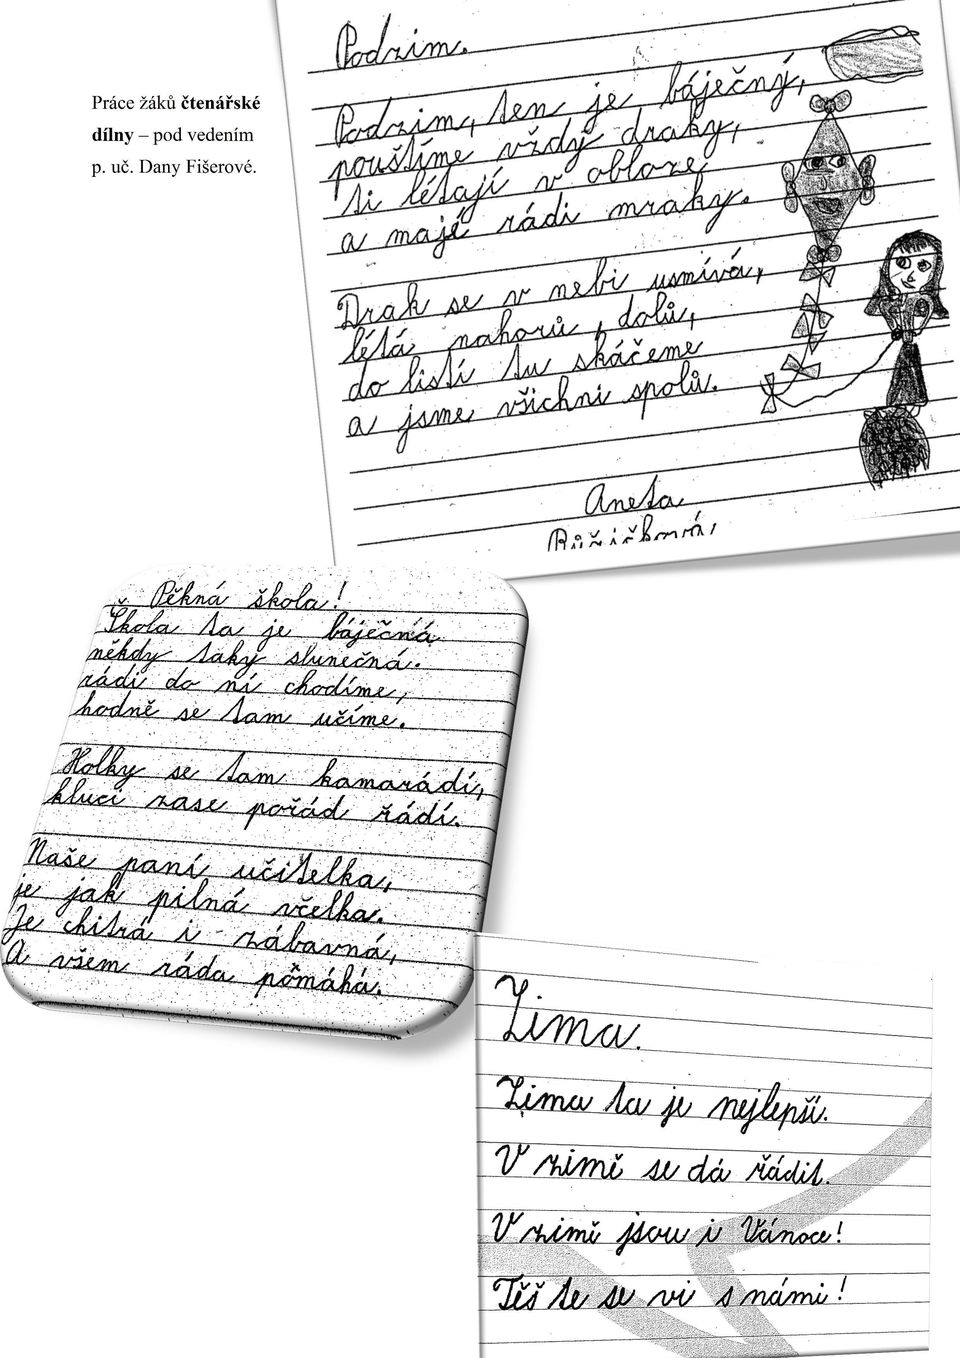 Práce žáků čtenářské
dílny – pod vedením
p. uč. Dany Fišerové.
Podzim.
Podzim, ten je báječný,
pouštíme vždy draky,
ti létají v obloze
a mají rádi mraky.
Drak se v nebi usmívá,
létá nahorů, dolů,
do listí tu skáčeme
a jsme všichni spolů.
Aneta
Růžičková
Pěkná škola!
Škola ta je báječná
někdy taky slunečná.
rádi do ní chodíme,
hodně se tam učíme.
Holky se tam kamarádí,
kluci zase pořád řádí.
Naše paní učitelka,
je jak pilná včelka.
Je chitrá i zábavná,
A všem ráda pomáhá.
Zima.
Zima ta je nejlepší.
V zimě se dá řádit.
V zimě jsou i Vánoce!
Těš te se vi s námi!